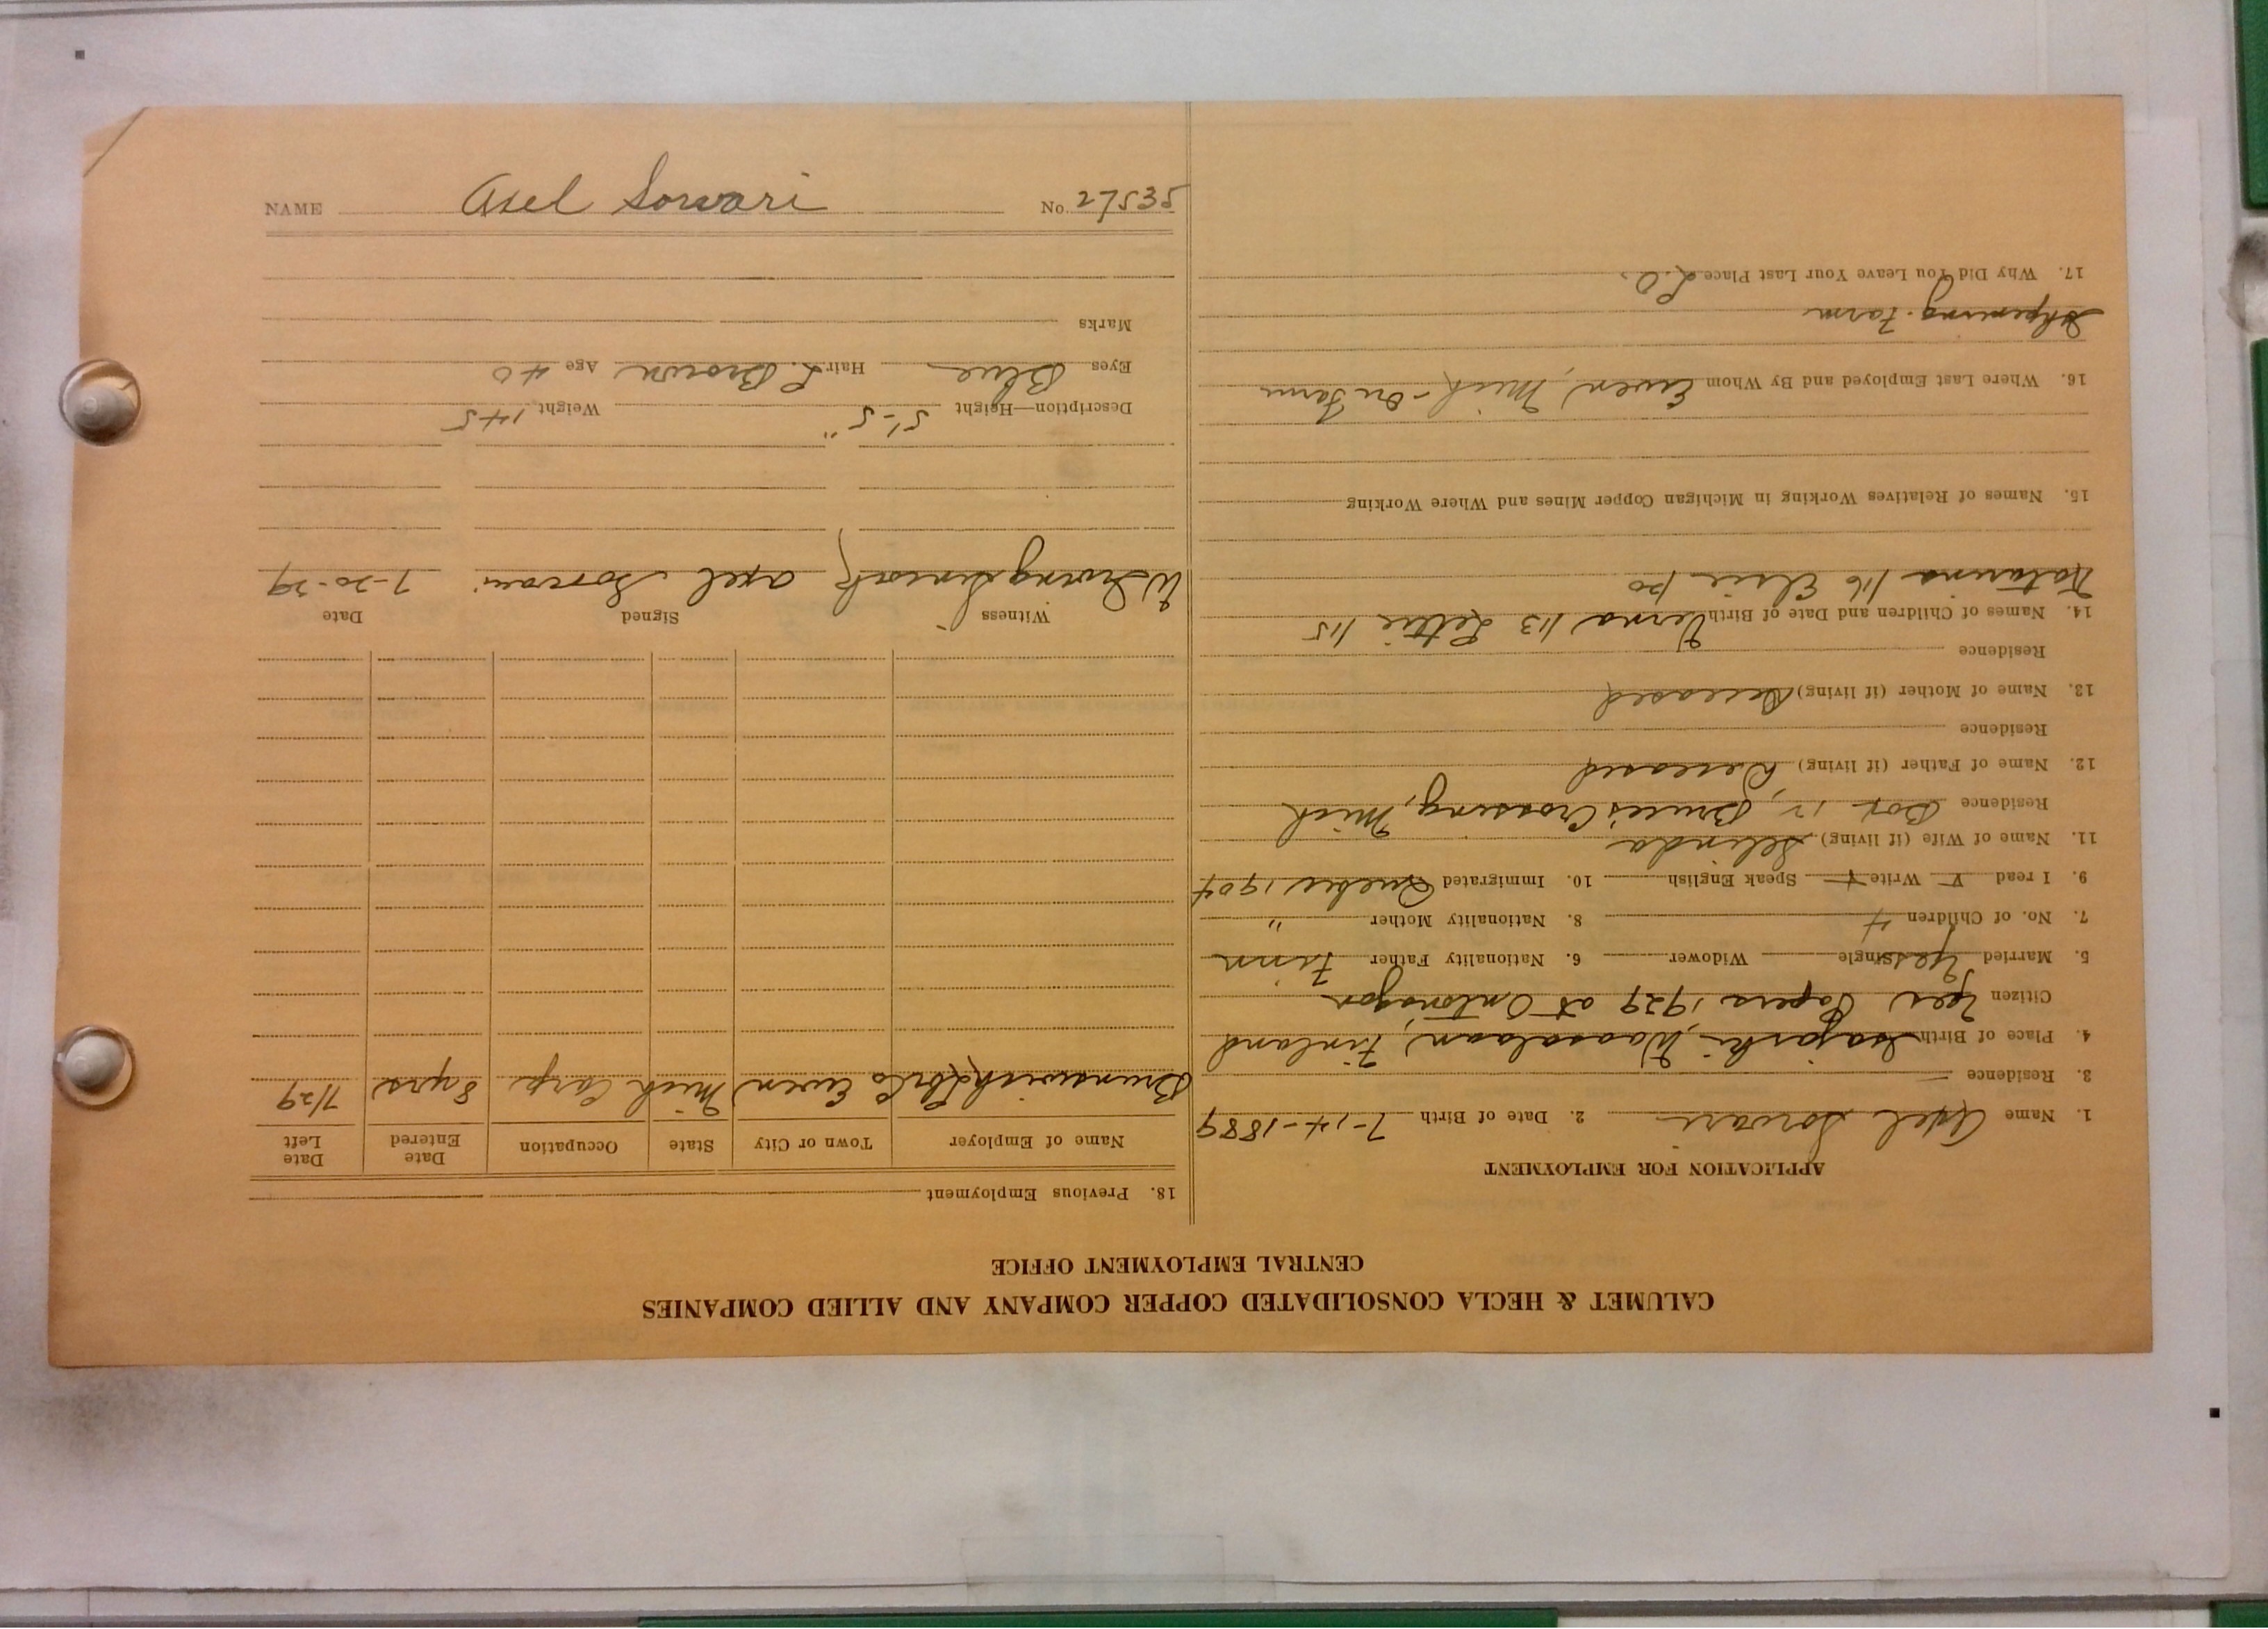 CALUMET & HECLA CONSOLIDATED COPPER COMPANY AND ALLIED COMPANIES
CENTRAL EMPLOYMENT OFFICE
APPLICATION FOR EMPLOYMENT
1. Name Axel Sorvari 2. Date of Birth 7-14-1889
3. Residence
4. Place of Birth Isajorki, Waasalaan, Finland
Citizen Yes Papers 1929 at Ontonagon
5. Married Yes Single Widower 6. Nationality Father Finn
7. No. of Children 4 8. Nationality Mother "
9. I read Write Speak English 10. Immigrated Quebec 1904
11. Name of Wife (if living) Selinda
Residence Box 12, Bruces Crossing, Mich
12. Name of Father (if living) Deceased
Residence
13. Name of Mother (if living) Deceased
Residence
14. Names of Children and Date of Birth Verna 1/13 Lettie 1/15
Katarina 1/16 Elsie 1/20
15. Names of Relatives Working in Michigan Copper Mines and Where Working
16. Where Last Employed and By Whom Ewen, Mich - On Farm
Farm
17. Why Did You Leave Your Last Place
18. Previous Employment
Name of Employer Town or City State Occupation Date Entered Date Left
Brunswick Ewen Mich Carp 8 yrs 7/29
Witness Signed Date
W Irving Axel Sorvari 7-20-29
Description—Height 5'-5" Weight 145
Eyes Blue Hair L. Brown Age 40
Marks
NAME Axel Sorvari No. 27535